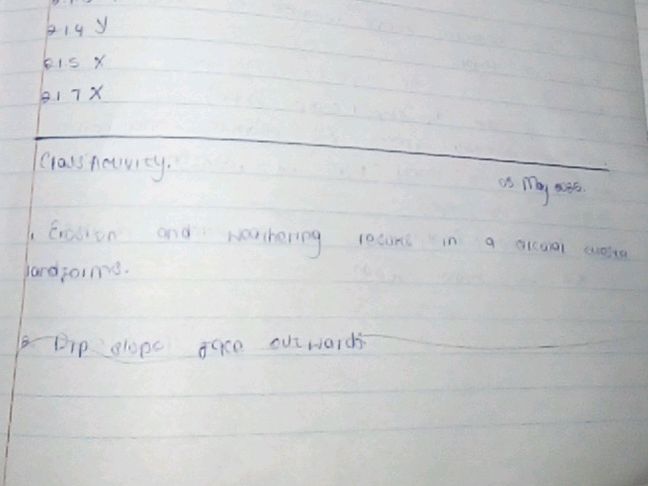 2.1.4 Y
2.1.5 X
2.1.7 X
Class Activity.
05 May 2025.
1. Erosion and weathering results in a cuesta
landforms.
2. Dip slope face outwards